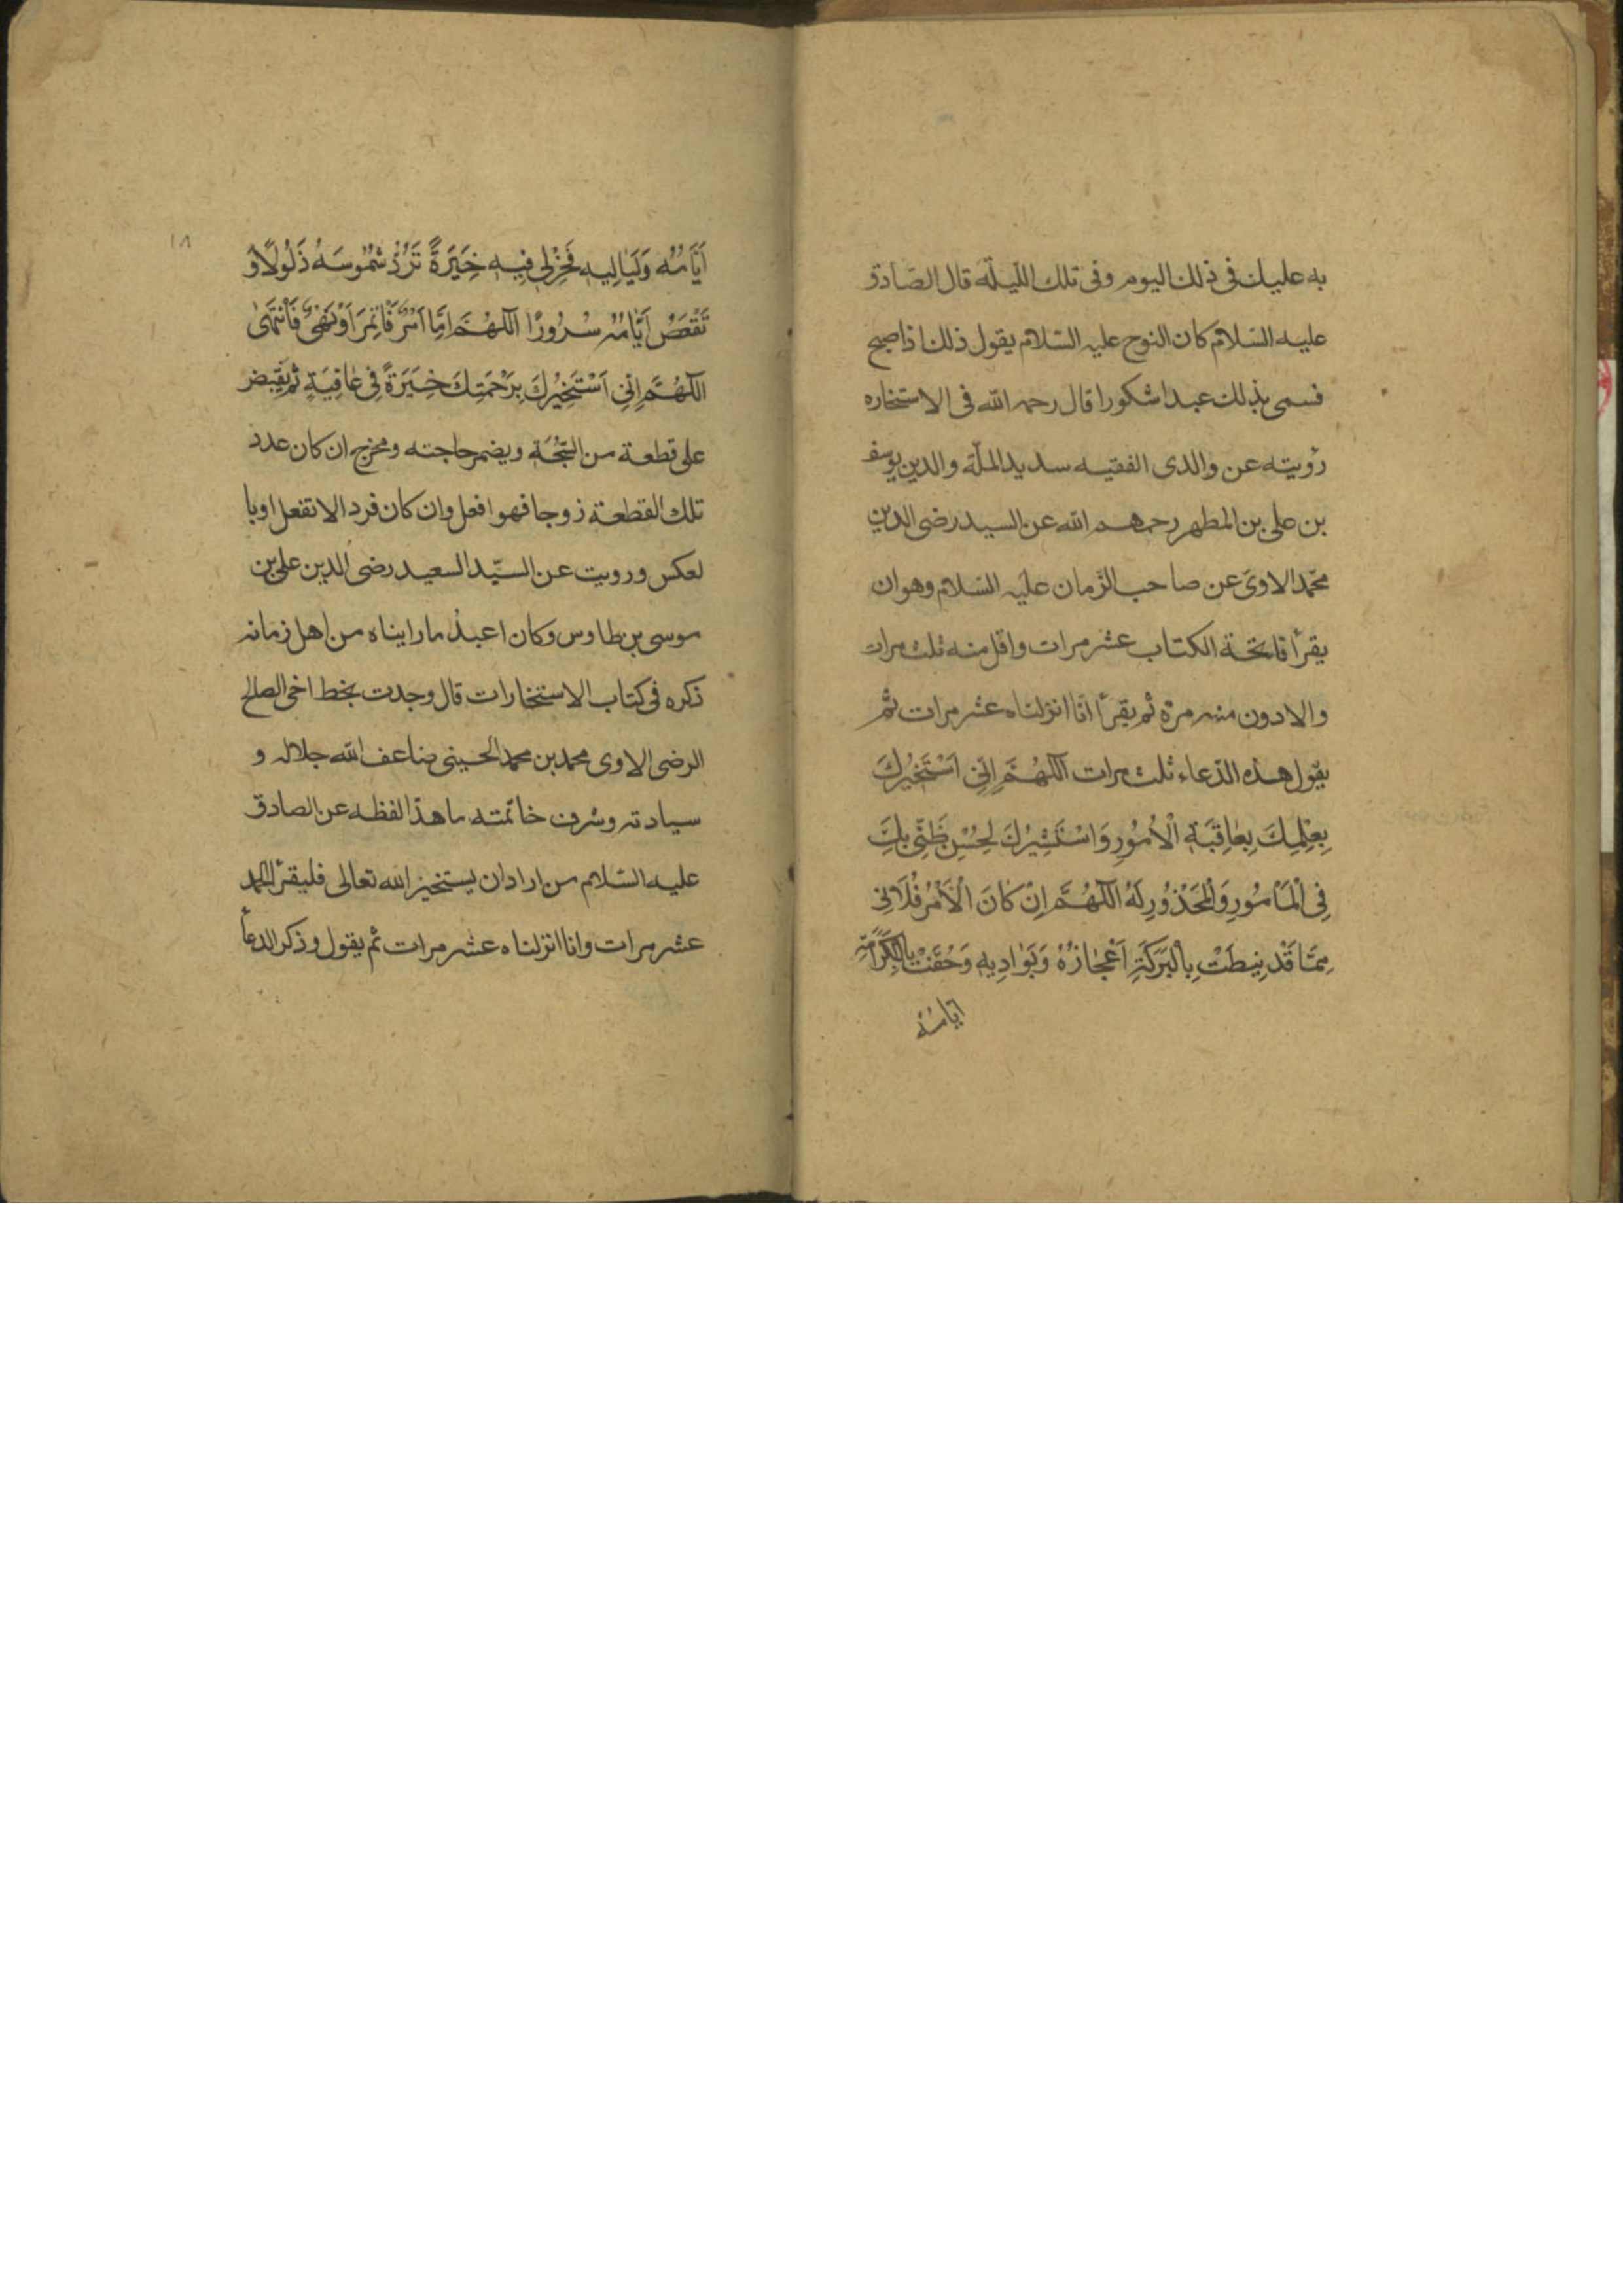 به عليك فى ذلك اليوم وفى تلك اللّيلة قال الصّادق
عليه السّلام كان النوح عليه السّلام يقول ذلك اذا صبح
فسمى بذلك عبدا شكورا قال رحمه الله فى الاستخاره
رؤيته عن والدى الفقيه سديد الملّة والدين يوسف
بن على بن المطهر رحمهم الله عن السيد رضى الدين
محمّد الاوىّ عن صاحب الزّمان عليه السّلام وهو ان
يقرأ فاتحة الكتاب عشر مرات واقل منه ثلث مرات
والادون منه مرة ثم يقرأ انّا انزلناه عشر مرات ثم
يقول هذه الدّعاء ثلث مرات اَللّهُمَّ اِنّى اَسْتَخيرُكَ
بِعِلْمِكَ بِعٰاقِبَةِ الْاُمُورِ وَاسْتَشيرُكَ لِحُسْنِ ظَنّى بِكَ
فِى الْمَأمُورِ وَالْمَحْذُورِ لَهُ اَللّهُمَّ اِنْ كٰانَ الْاَمْرُ فُلٰانى
مِمّا قَدْ نيطَتْ بِالْبَرَكَةِ اَعْجٰازُهُ وَبَوٰاديهِ وَحُفَّتْ بِالْكَرٰامَةِ
ايّامُهُ
١٨
اَيّٰامُهُ وَلَيٰاليهِ فَخِرْلى فيهِ خِيَرَةً تَرُدُّ شُمُوسَهُ ذَلُولًا وَ
تَقْعَصُ اَيّٰامُهُ سُرُورًا اَللّهُمَّ اِمّٰا اَمْرٌ فَاْتَمِرَ اَوْ نَهْىٌ فَاَنْتَهىٰ
اَللّهُمَّ اِنّى اَسْتَخيرُكَ بِرَحْمَتِكَ خِيَرَةً فى عٰافِيَةٍ ثم يقبض
على قطعة من السّبْحَة ويضمر حاجته ومخرج ان كان عدد
تلك القطعة زوجا فهو افعل وان كان فردا لا تفعل او با
لعكس ورويت عن السيّد السعيد رضى الدين على بن
موسى بن طاوس وكان اعبد ما رايناه من اهل زمانه
ذكره فى كتاب الاستخارات قال وجدت بخط اخى الصالح
الرضى الاوى محمد بن محمد الحسينى ضاعف الله جلاله و
سيادته وشرف خاتمته ما هذا لفظه عن الصادق
عليه السّلام من اراد ان يستخير الله تعالى فليقرأ الحمد
عشر مرات وانا انزلناه عشر مرات ثم يقول وذكر الدعأ